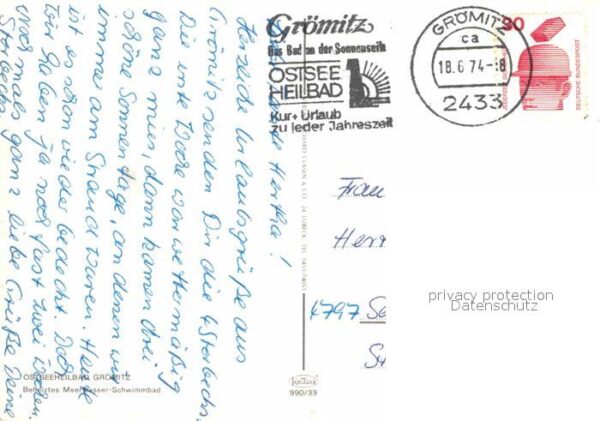 Hertha!
Herzliche Urlaubsgrüße aus
Grömitz senden Dir die
Die erste Woche war wettermäßig
ganz mies, dann kamen drei
schöne Sonnentage, an denen wir
immer am Strand waren. Heute
ist es schon wieder bedeckt. Doch
wir haben ja noch fast zwei Wochen.
Nochmals ganz liebe Grüße Deine
Grömitz
Das Bad an der Sonnenseite
OSTSEE
HEILBAD
Kur + Urlaub
zu jeder Jahreszeit
GRÖMITZ
ca
18.6.74-18
2433
30
DEUTSCHE BUNDESPOST
Frau
Herr
4797
privacy protection
Datenschutz
OSTSEEHEILBAD GRÖMITZ
Beheiztes Meerwasser-Schwimmbad
KRÜGER
990/39